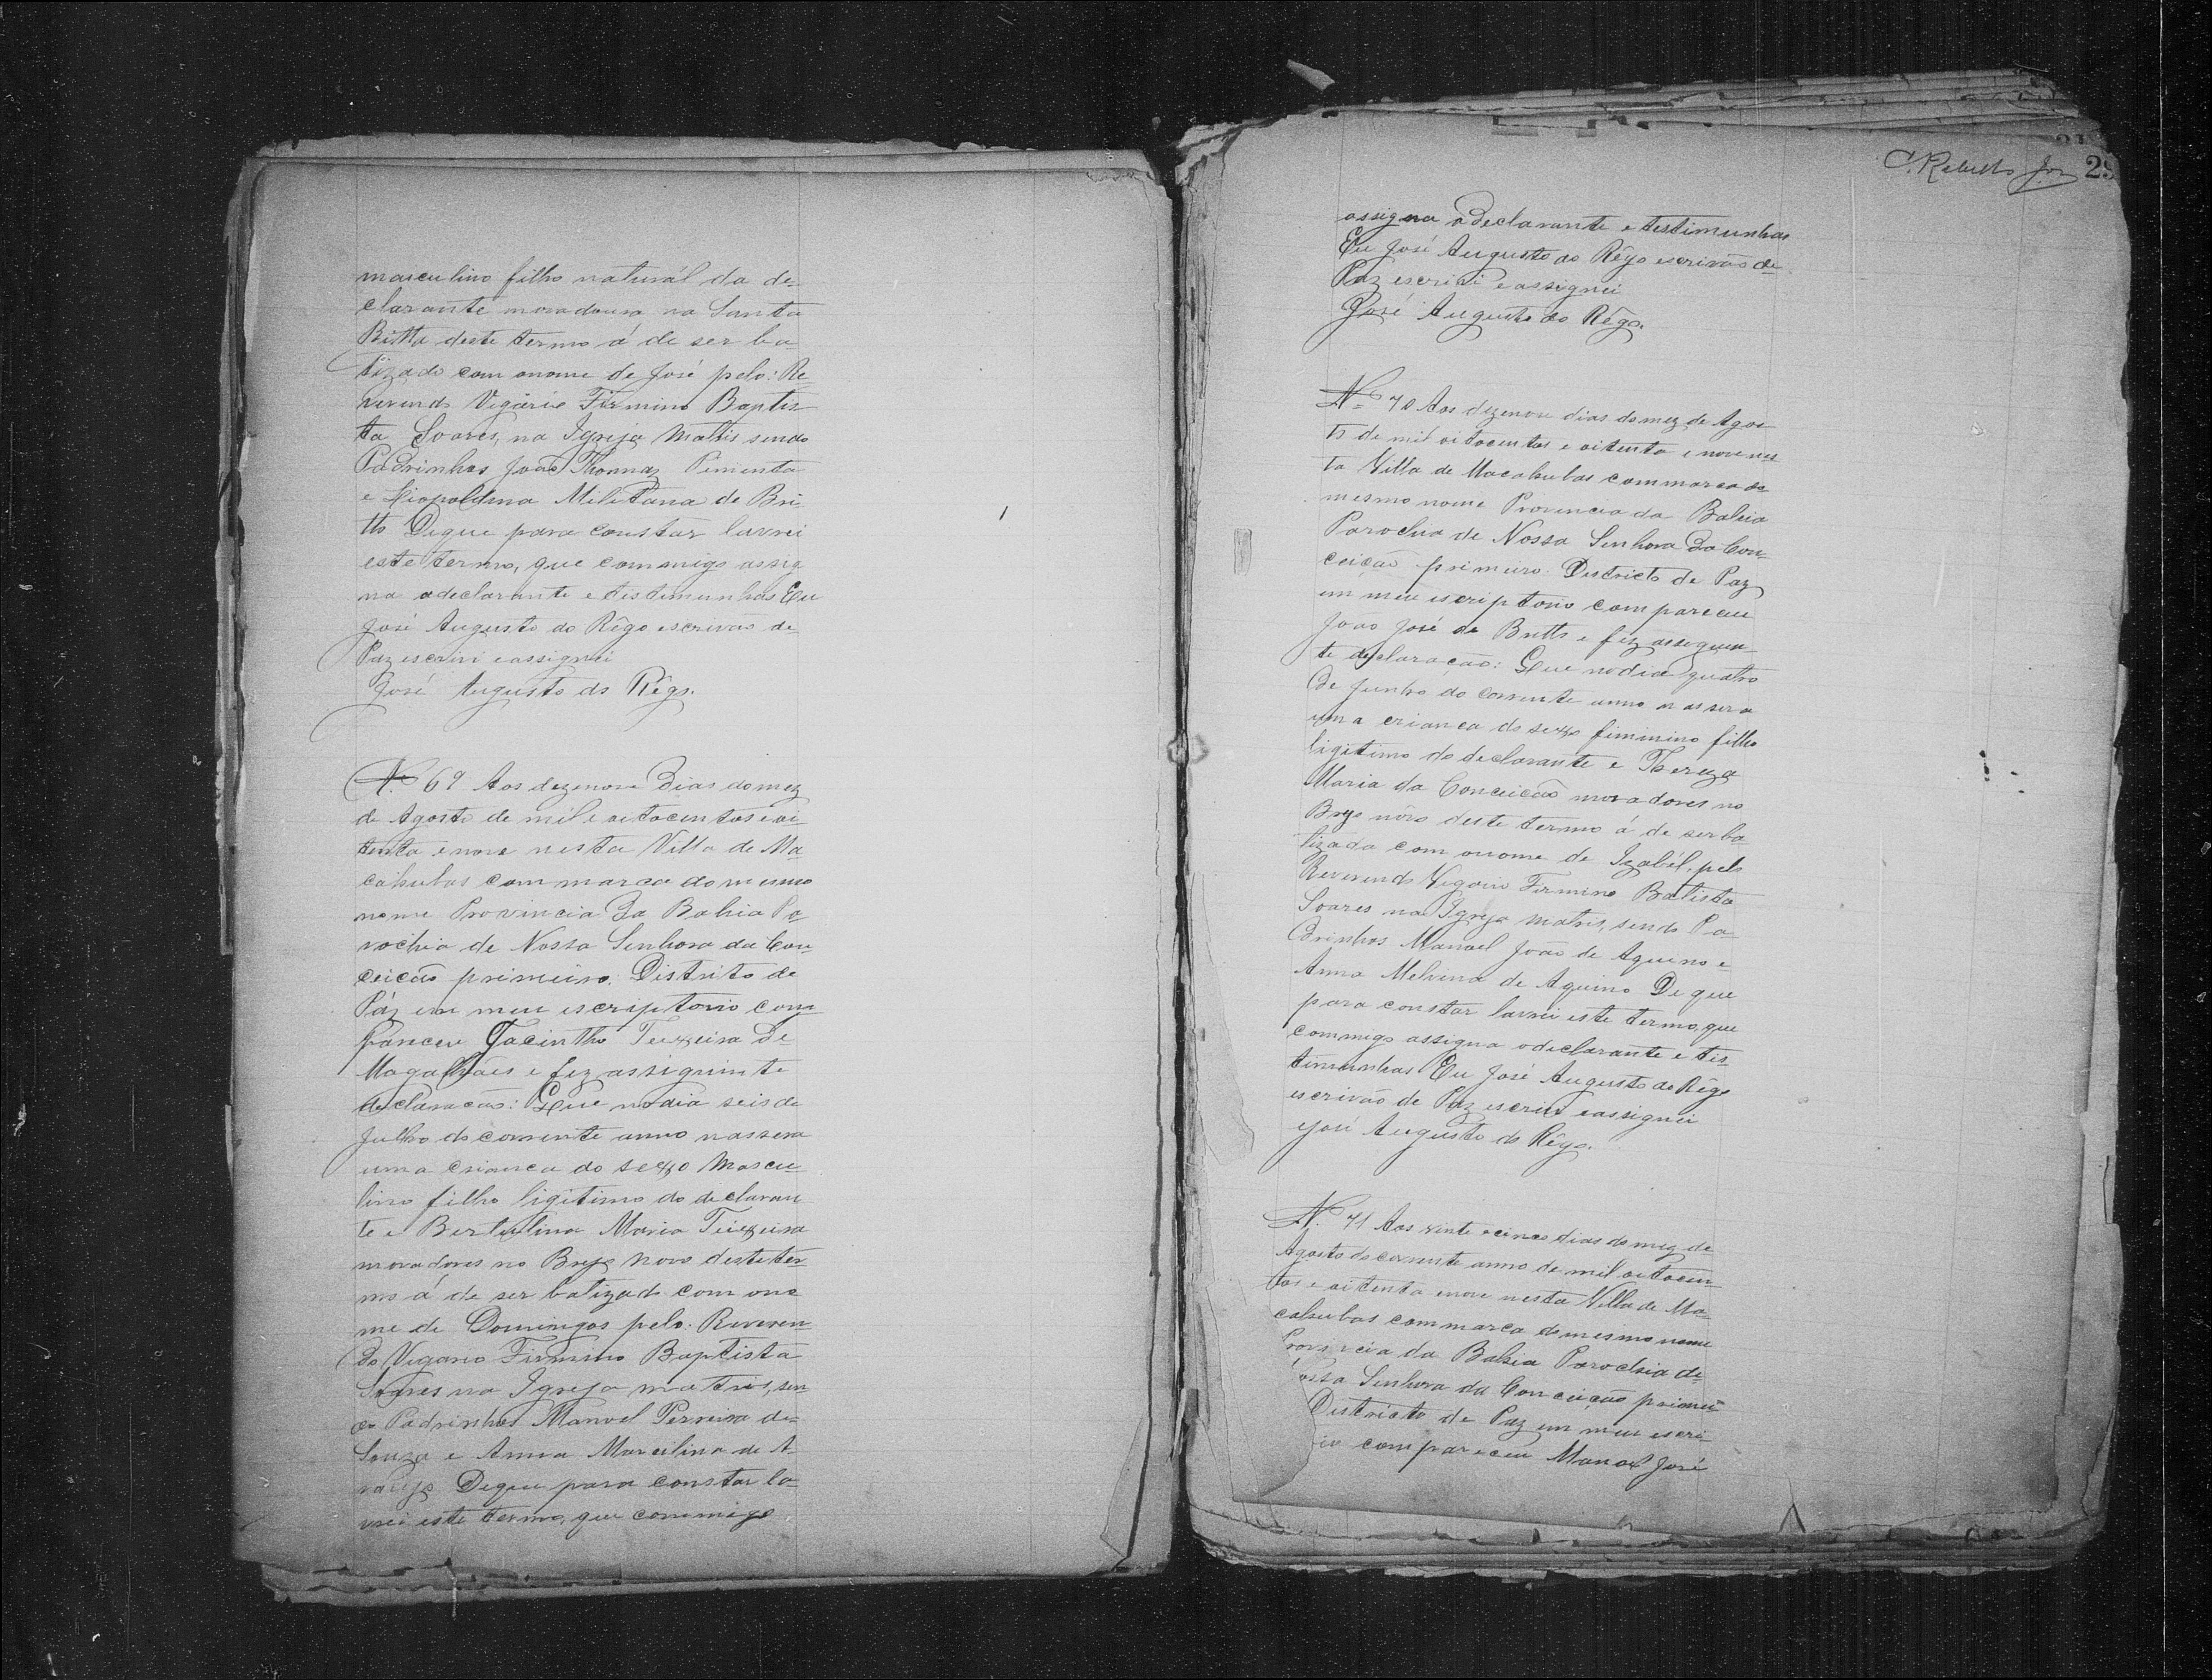 masculino filho naturál da de=
clarante moradoura na Santa
Britta deste termo á de ser ba-
tizado com onome de José pelo: Re-
verendo Vigário Firmino Baptis-
ta Soares, na Igreja Matris sendo
Padrinhos João Thomaz Pimenta
e Liopoldina Militana de Bri-
tto Deque para constar lavrei
este termo, que commigo assig
na adeclarante e testimunhas Eu
José Augusto do Rêgo escrivão de
Paz escrivi eassignei
José Augusto do Rêgo.
Nº 69 Aos dezenove Dias domez
de Agosto de mil e oitocentos e oi-
tenta enove nesta Villa de Ma-
cahubas commarca do mesmo
nome Provincia Da Bahia Pa-
rochia de Nossa Senhora da Con-
ceicão primeiro: Distrito de
Páz em meu escriptorio com
pareceu Jacintho Teixeira De
Magalhães e fez assiguinte
declaracão: Que nodia seis de
Julho do corrente anno nassera
uma crianca do sexo Mascu-
lino filho ligitimo do declaran
te e Bertulina Maria Teixeira
moradores no Brejo novo desteter-
mo á de ser batizado com ono
me de Domingos pelo: Reveren-
do Vigario Firmino Baptista
Soares na Igreja matris, sen
do Padrinhos Manoel Perreira de
Souza e Anna Marcilina de A-
raujo Deque para constar la-
vrei este termo, que commigo
C. Rebello Jor 29
assigna oDeclarante e testimunhas
Eu José Augusto do Rêgo escrivão de
Paz escrivi e assignei
José Augusto do Rêgo.
Nº 70 Aos dezenove dias domez de Agos-
to de mil oitocentos e oitenta e nove nes-
ta Villa de Macahubas commarca do
mesmo nome Provincia da Bahia
Parochia de Nossa Senhora Da Con-
ceicão primeiro: Districto de Paz
em meu escriptorio compareceu
João José de Britto e fez asseguin-
te declaracão: Que nodia quatro
de Junho do corrente anno nassera
uma crianca do sexo fiminino filha
ligitimo do declarante e Thereza
Maria da Conceicão moradores no
Brejo nôvo deste termo á de ser ba
tizada com onome de Izabél, pelo
Reverendo Vigario Firmino Batista
Soares na Igreja matris, sendo Pa-
drinhos Manoel João de Aquino e
Anna Melvina de Aquino Deque
para constar lavrei este termo, que
commigo assigna odeclarante e tes-
timunhas Eu José Augusto do Rêgo
escrivão de Paz escrivi eassignei
José Augusto do Rêgo.
N. 71 Aos vinte ecinco dias do mez de
Agosto do corrente anno de mil oitocen-
tos e oitenta enove nesta Villa de Ma-
cahubas commarca do mesmo nome
Provincia da Bahia Parochia de
ossa Senhora da Conceicão primei-
Districto de Paz em meu escri-
io compareceu Manoel José